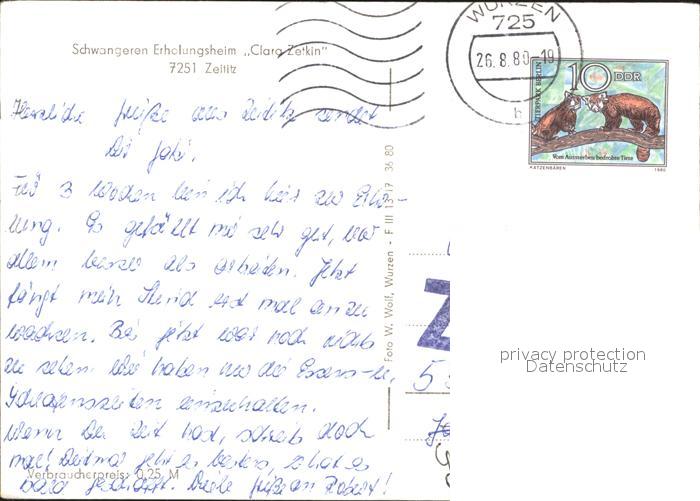 Schwangeren Erholungsheim „Clara Zetkin"
7251 Zeititz
WURZEN
725
26.8.80-19
h
TIERPARK BERLIN
10 DDR
Vom Aussterben bedrohte Tiere
KATZENBÄREN 1980
Herzliche Grüße aus Zeititz sendet
Dir
Für 3 Wochen bin ich hier zur Erho-
lung. Es gefällt mir sehr gut, vor
allem besser als arbeiten. Jetzt
fängt mein Kind erst mal an zu
wachsen. Bis jetzt war noch nichts
zu sehen. Wir haben nur die Essens- u.
Schlafenszeiten einzuhalten.
Wenn Du Zeit hast, schreib doch
mal! geht es bestens, hat es
bald geschafft. Viele Grüße an Robert!
Verbraucherpreis: 0,25 M
Foto W. Wolf, Wurzen - F III 1317 36 80
privacy protection
Datenschutz